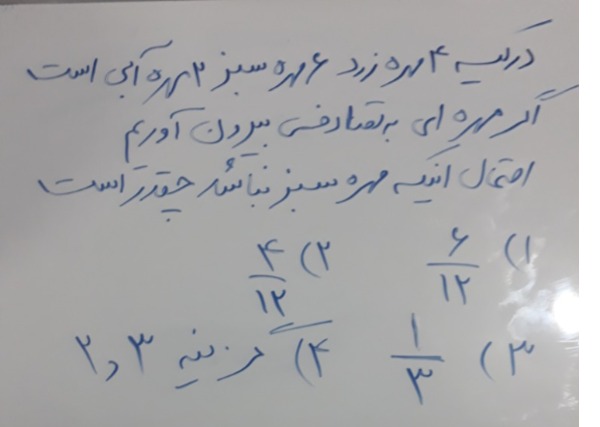 در کیسه ۴ مهره زرد ۶ مهره سبز ۲ مهره آبی است
اگر مهره ای به تصادف بیرون آوریم
احتمال اینکه مهره سبز نباشد چقدر است
۱) ۶/۱۲ ۲) ۴/۱۲
۳) ۱/۳ ۴) گزینه ۳ و ۲